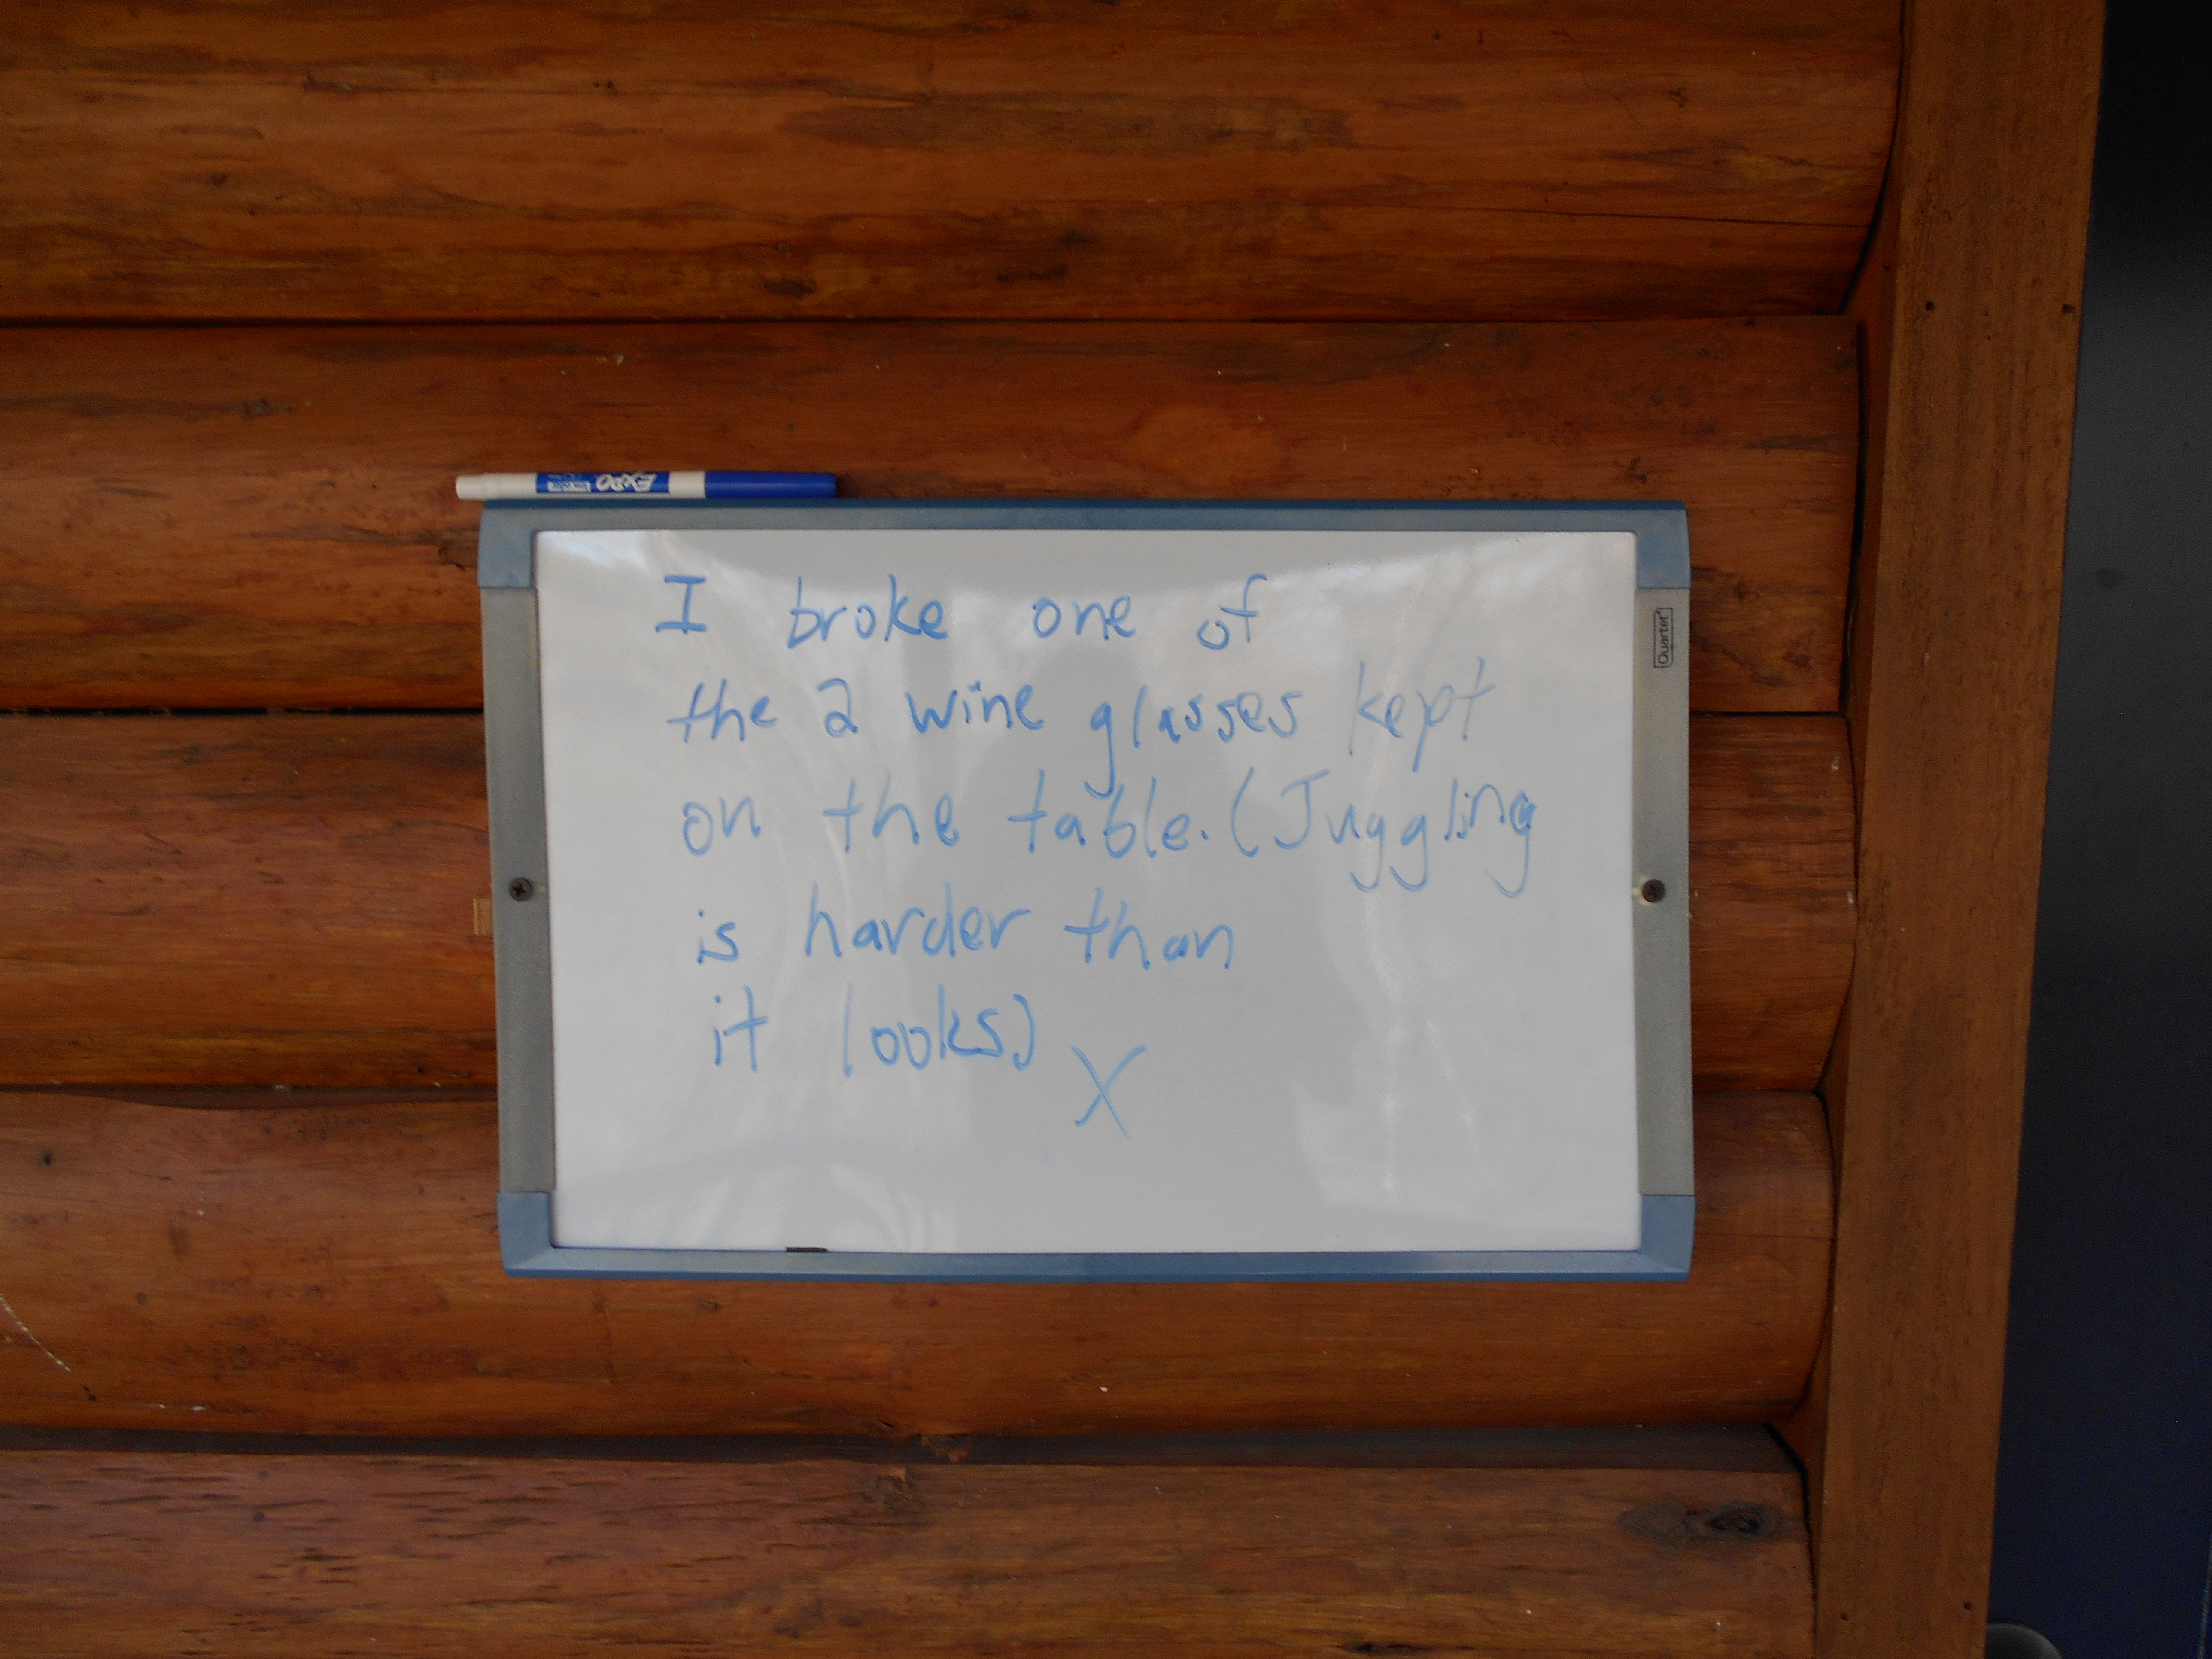 EXPO
I broke one of
the 2 wine glasses kept
on the table. (Juggling
is harder than
it looks)
X
Quartet